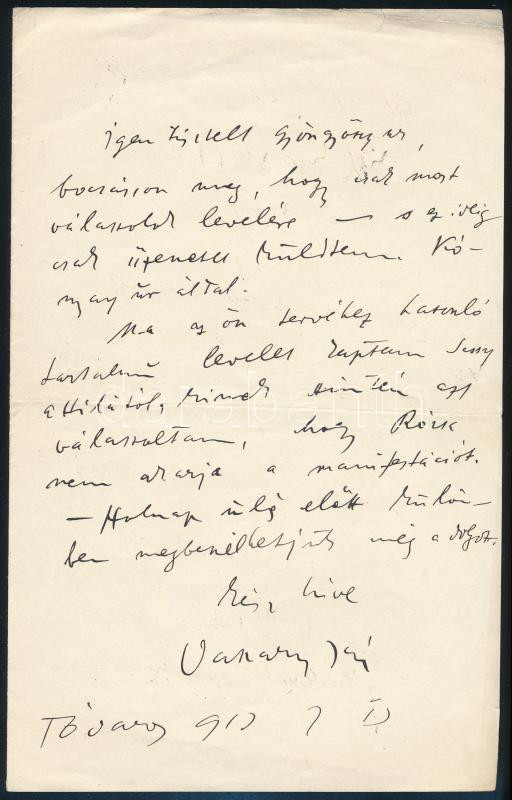 Igen tisztelt Gyöngyösy úr,
bocsásson meg, hogy csak most
válaszolok levelére — s ez ideig
csak üzenetet küldtem Kó-
nyay úr által.
Ma az ön tervéhez hasonló
tartalmú levelet kaptam
Attilától, kinek szintén azt
válaszoltam, hogy Rózsa
nem akarja a manifestációt.
— Holnap ülés előtt külön-
ben megbeszélhetjük még a dolgot.
híve
Vaszary Ján
Tóváros 91
darabanth